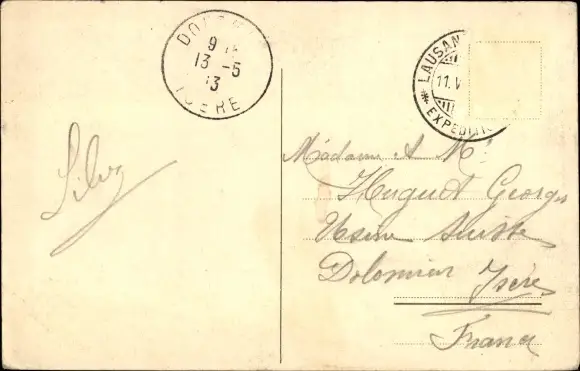 9
13 -5
13
ISERE
LAUSAN
11. V
EXPEDITI
Madame & Mr
Huguet Georges
Usine Suisse
Dolomieu Isère
France